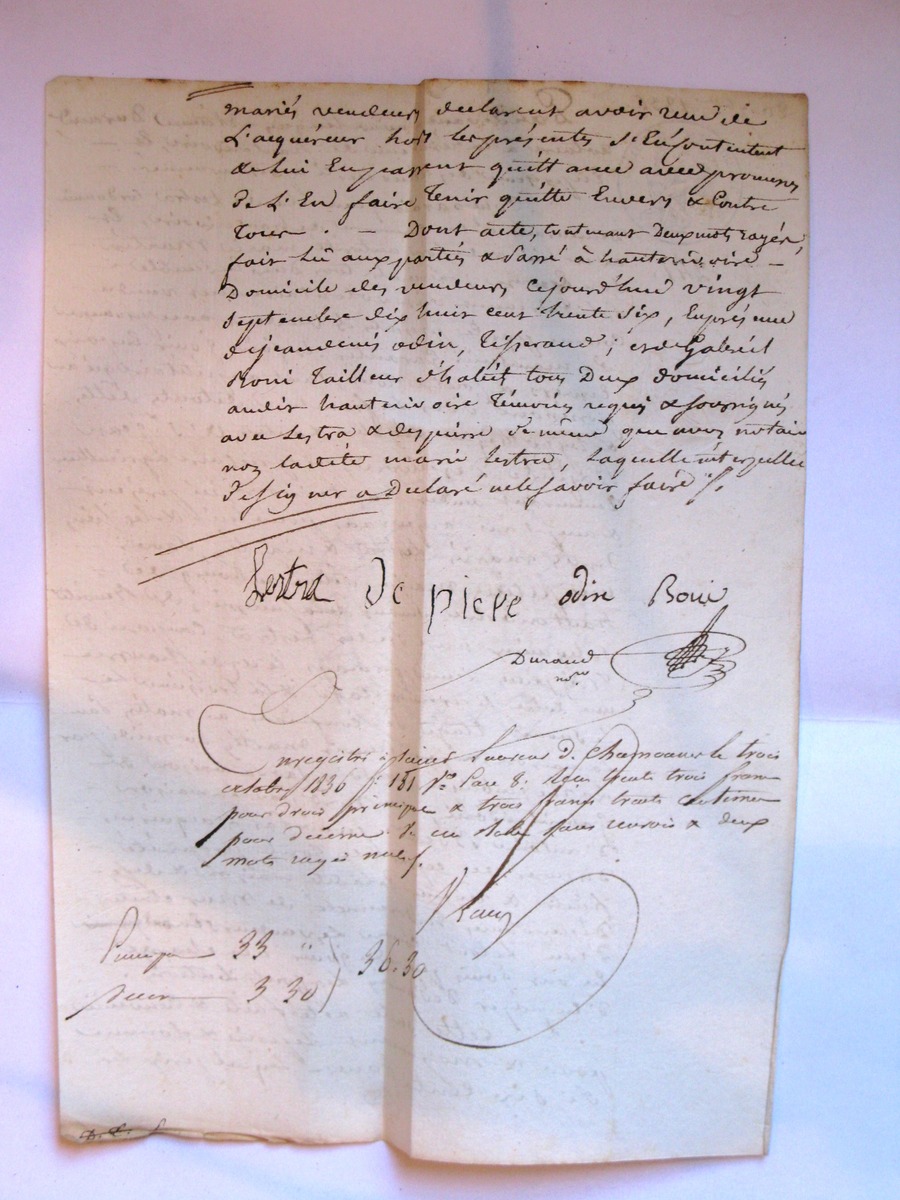 mariés vendeurs declarent avoir reçu de
L'acquéreur hors les présentes S'En Contentent
de lui En passent quitt ance avec promesse
De L'En faire Tenir quitte Envers & Contre
Tous . — Dont acte, contenant Deux mots rayés,
fait Lû aux parties & Passé à hauterivoire —
Domicile des vendeurs Cejourd'hui vingt
Septembre dix huit cent trente six, En présence
de jean denis odin, Tisserand ; et de Gabriel
Roui Tailleur d'habit tous Deux domiciliés
audit hauterivoire Témoins requis & soussignés
avec Lestra & depierre de même que nous notaire
non ladite marie Lestra, Laquelle interpellée
De signer a Declaré ne le savoir faire /.
Lestra De piere odin Roui
Durand
nore
Enregistré à bureau de le trois
octobre 1836 f. 181 vo Case 8. Reçu trente trois francs
pour droit principal & trois francs trente centimes
pour décime sans renvois & deux
mots rayés nuls.
Principal 33 "
36.30
Decime 3 30